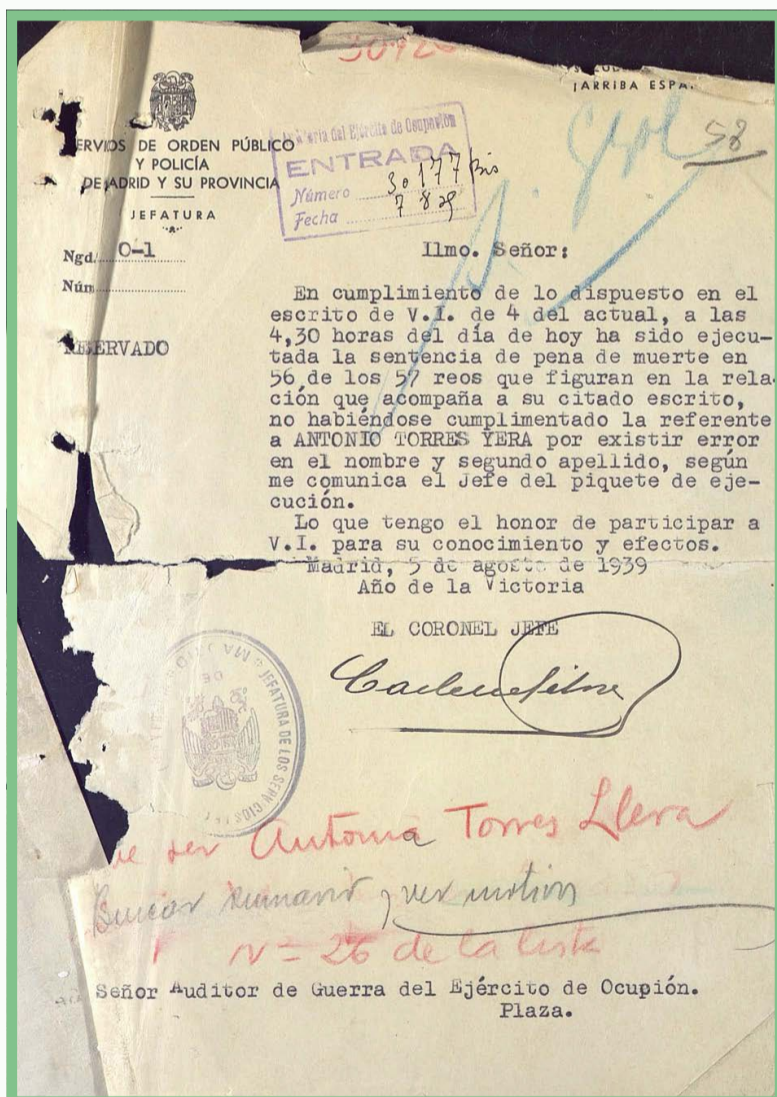 30920
¡ARRIBA ESPA
58
ERVIOS DE ORDEN PÚBLICO
Y POLICÍA
DE ADRID Y SU PROVINCIA
JEFATURA
del Ejército de Ocupación
ENTRADA
Número 30177 Bis
Fecha 7 8 39
Ngd. O-1
Núm
RESERVADO
Ilmo. Señor:
En cumplimiento de lo dispuesto en el
escrito de V.I. de 4 del actual, a las
4,30 horas del día de hoy ha sido ejecu-
tada la sentencia de pena de muerte en
56 de los 57 reos que figuran en la rela-
ción que acompaña a su citado escrito,
no habiéndose cumplimentado la referente
a ANTONIO TORRES YERA por existir error
en el nombre y segundo apellido, según
me comunica el Jefe del piquete de eje-
cución.
Lo que tengo el honor de participar a
V.I. para su conocimiento y efectos.
Madrid, 5 de agosto de 1939
Año de la Victoria
EL CORONEL JEFE
JEFATURA DE LOS SERVICIOS
ser Antonia Torres Llera
Buscar sumario y ver motivos
Nº 26 de la lista
Señor Auditor de Guerra del Ejército de Ocupión.
Plaza.